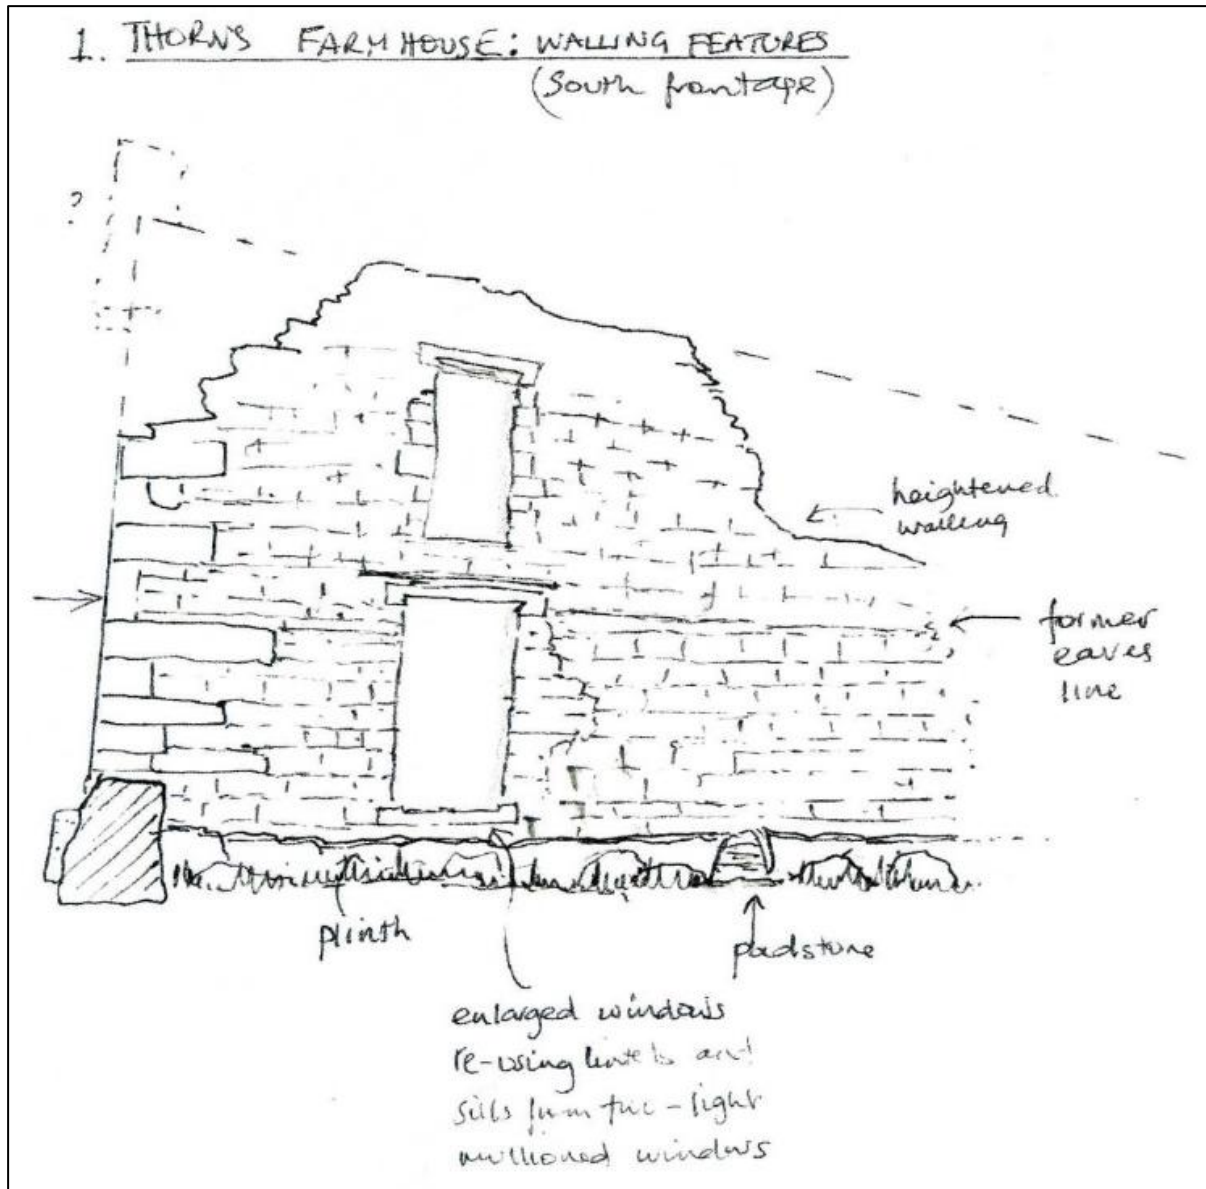 1. THORNS FARMHOUSE: WALLING FEATURES
(South frontage)
?
heightened
walling
former
eaves
line
plinth
padstone
enlarged windows
re-using lintels and
sills from two-light
mullioned windows